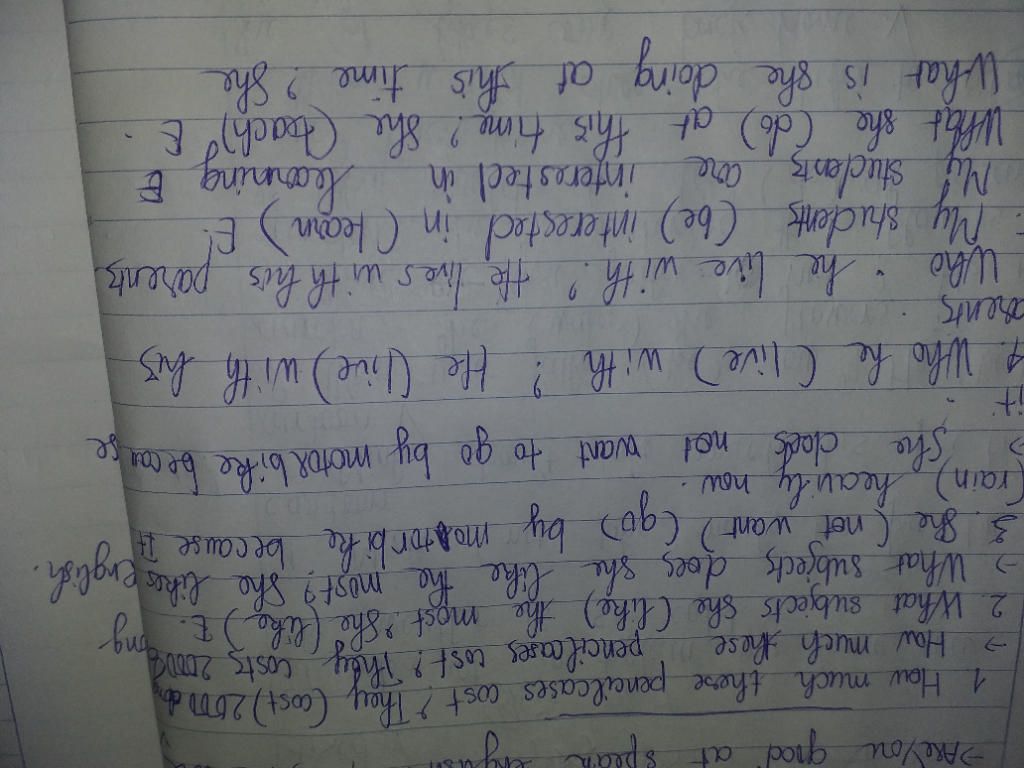 → Are you good at speak english
1. How much these pencilcases cost? They (cost) 2000 dong
→ How much these pencilcases cost? They costs 2000 đ
ong
2. What subjects she (like) the most? She (like) E.
→ What subjects does she like the most? She likes English.
3. She (not want) (go) by motorbike because it
(rain) heavily now.
→ She does not want to go by motorbike because
it.
4. Who he (live) with? He (live) with his
parents.
Who he live with? He lives with his parents
My students (be) interested in (learn) E.
My students are interested in learning E
What she (do) at this time? She (teach) E.
What is she doing at this time? She